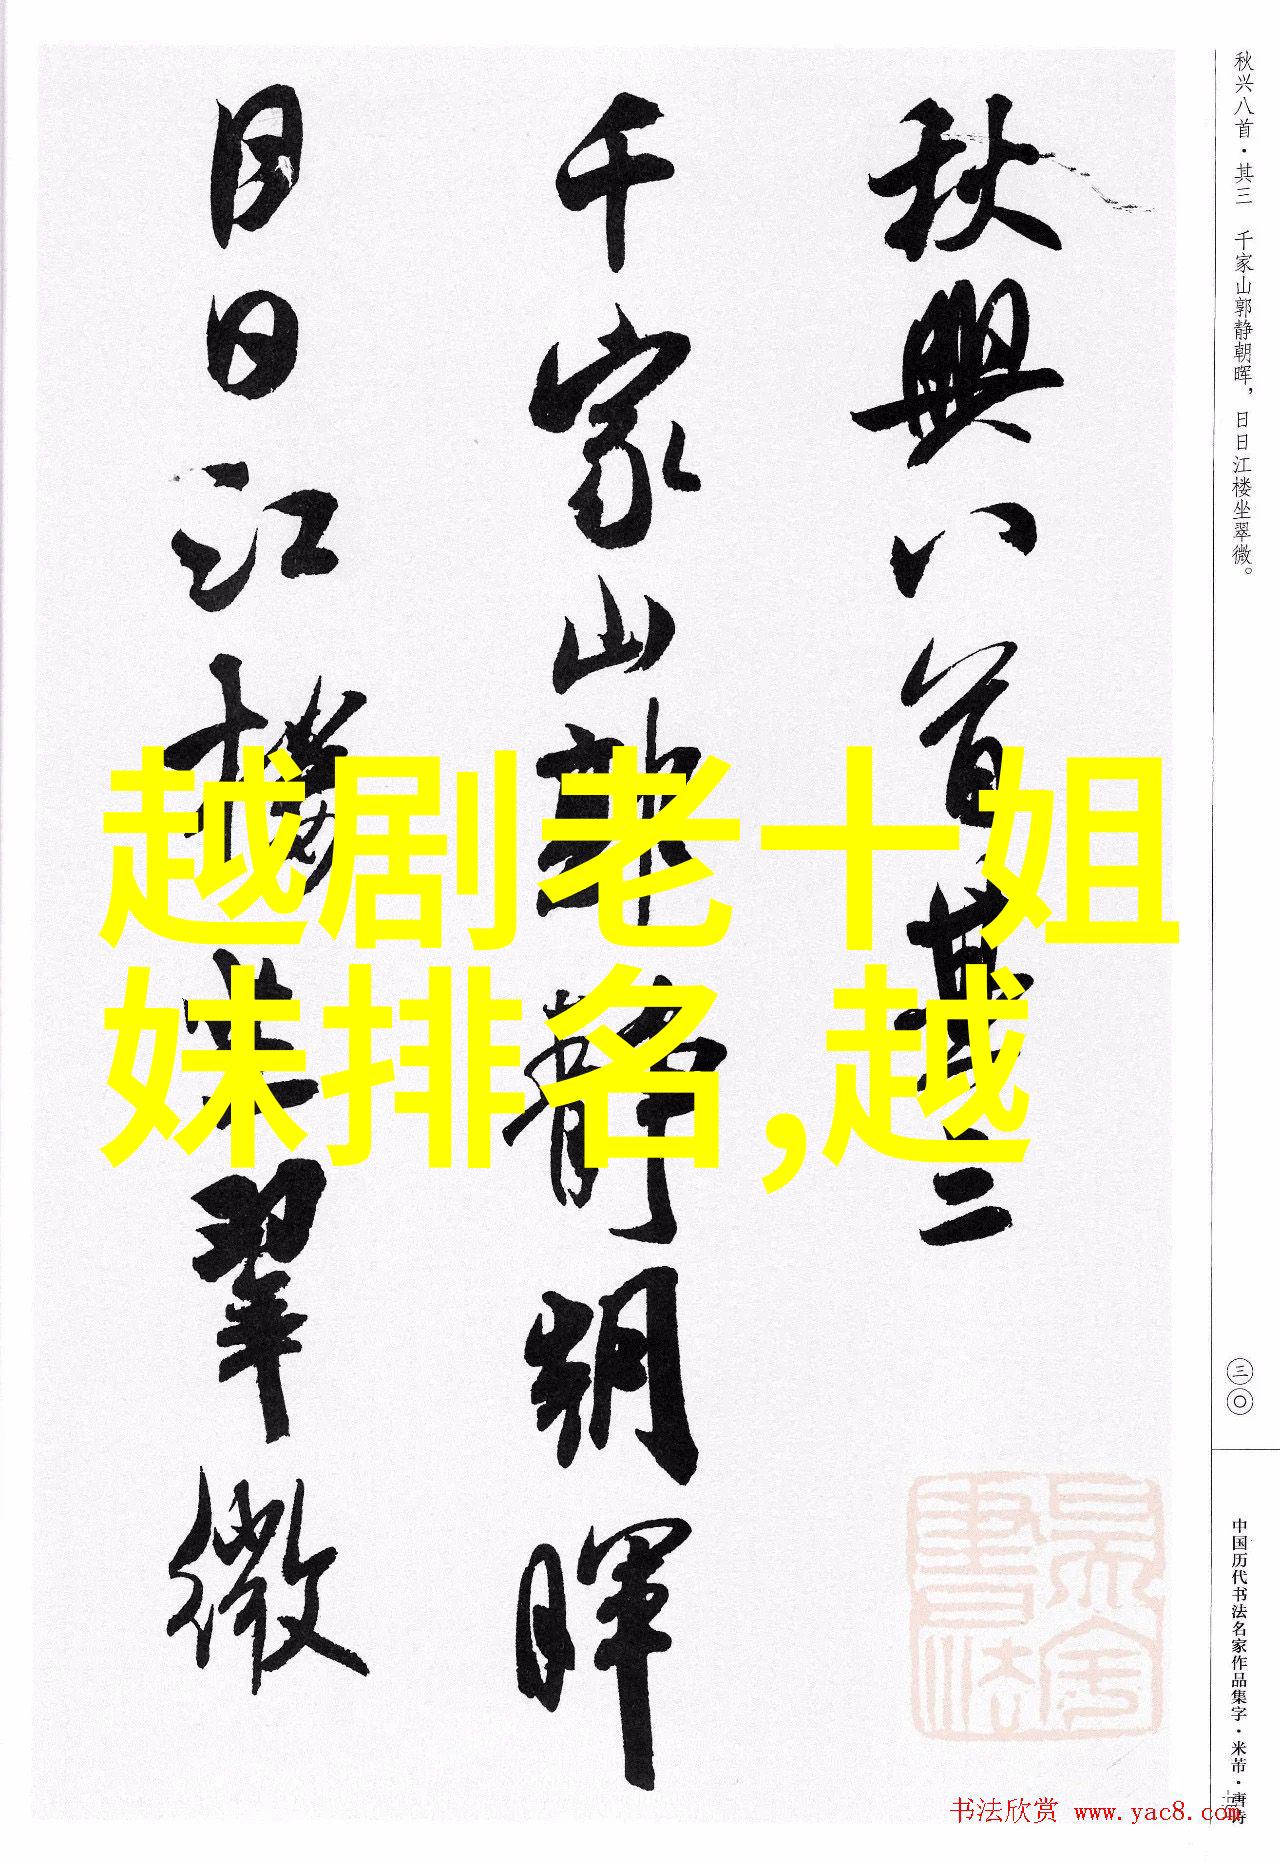 秋兴八首·其三　千家山郭静朝晖，日日江楼坐翠微。
秋興八首其三
千家山郭静朝暉
日日江樓坐翠微
越剧老十姐
妹排名,越
三〇
中国历代书法名家作品集字·米芾·唐诗
书法欣赏 www.yac8.com